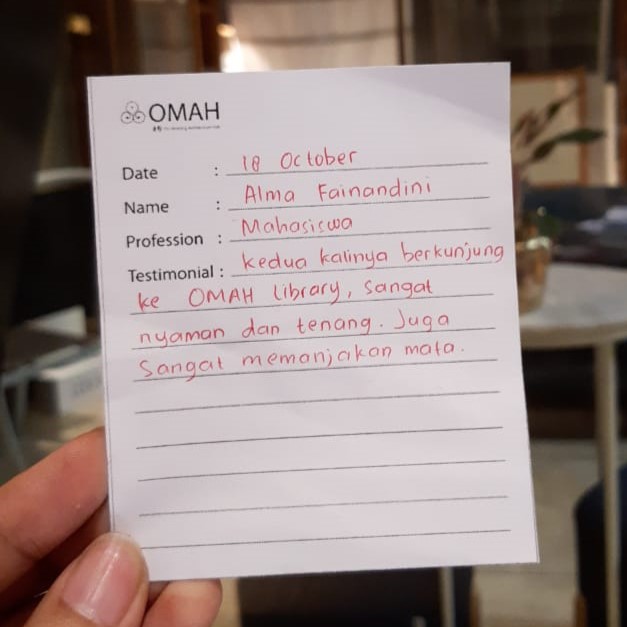 OMAH
Date : 18 October
Name : Alma Fainandini
Profession : Mahasiswa
Testimonial : Kedua kalinya berkunjung
ke OMAH library, sangat
nyaman dan tenang. Juga
Sangat memanjakan mata.